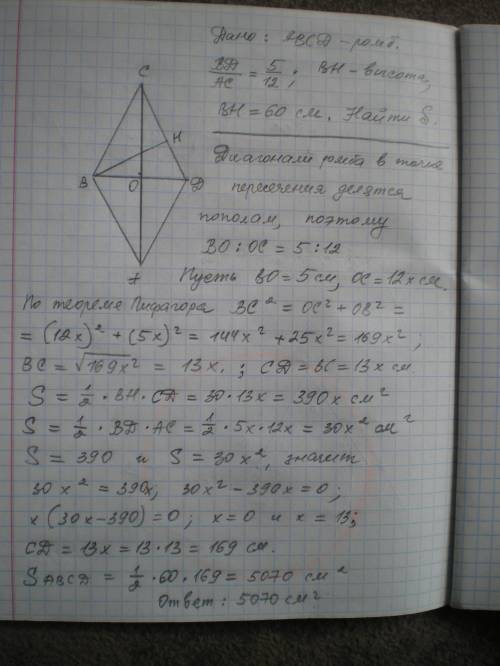 Дано: ABCD – ромб.
BD/AC = 5/12; BH – высота,
BH = 60 см. Найти S.
C
H
B
O
D
A
Диагонали ромба в точке
пересечения делятся
пополам, поэтому
BO : OC = 5 : 12
Пусть BO = 5 см, OC = 12x см.
По теореме Пифагора BC² = OC² + OB² =
= (12x)² + (5x)² = 144x² + 25x² = 169x²;
BC = √169x² = 13x.; CD = BC = 13x см
S = 1/2 · BH · CD = 30 · 13x = 390x см²
S = 1/2 · BD · AC = 1/2 · 5x · 12x = 30x² см²
S = 390 и S = 30x², значит
30x² = 390x, 30x² – 390x = 0;
x(30x – 390) = 0; x = 0 и x = 13;
CD = 13x = 13 · 13 = 169 см.
S ABCD = 1/2 · 60 · 169 = 5070 см²
Ответ: 5070 см²